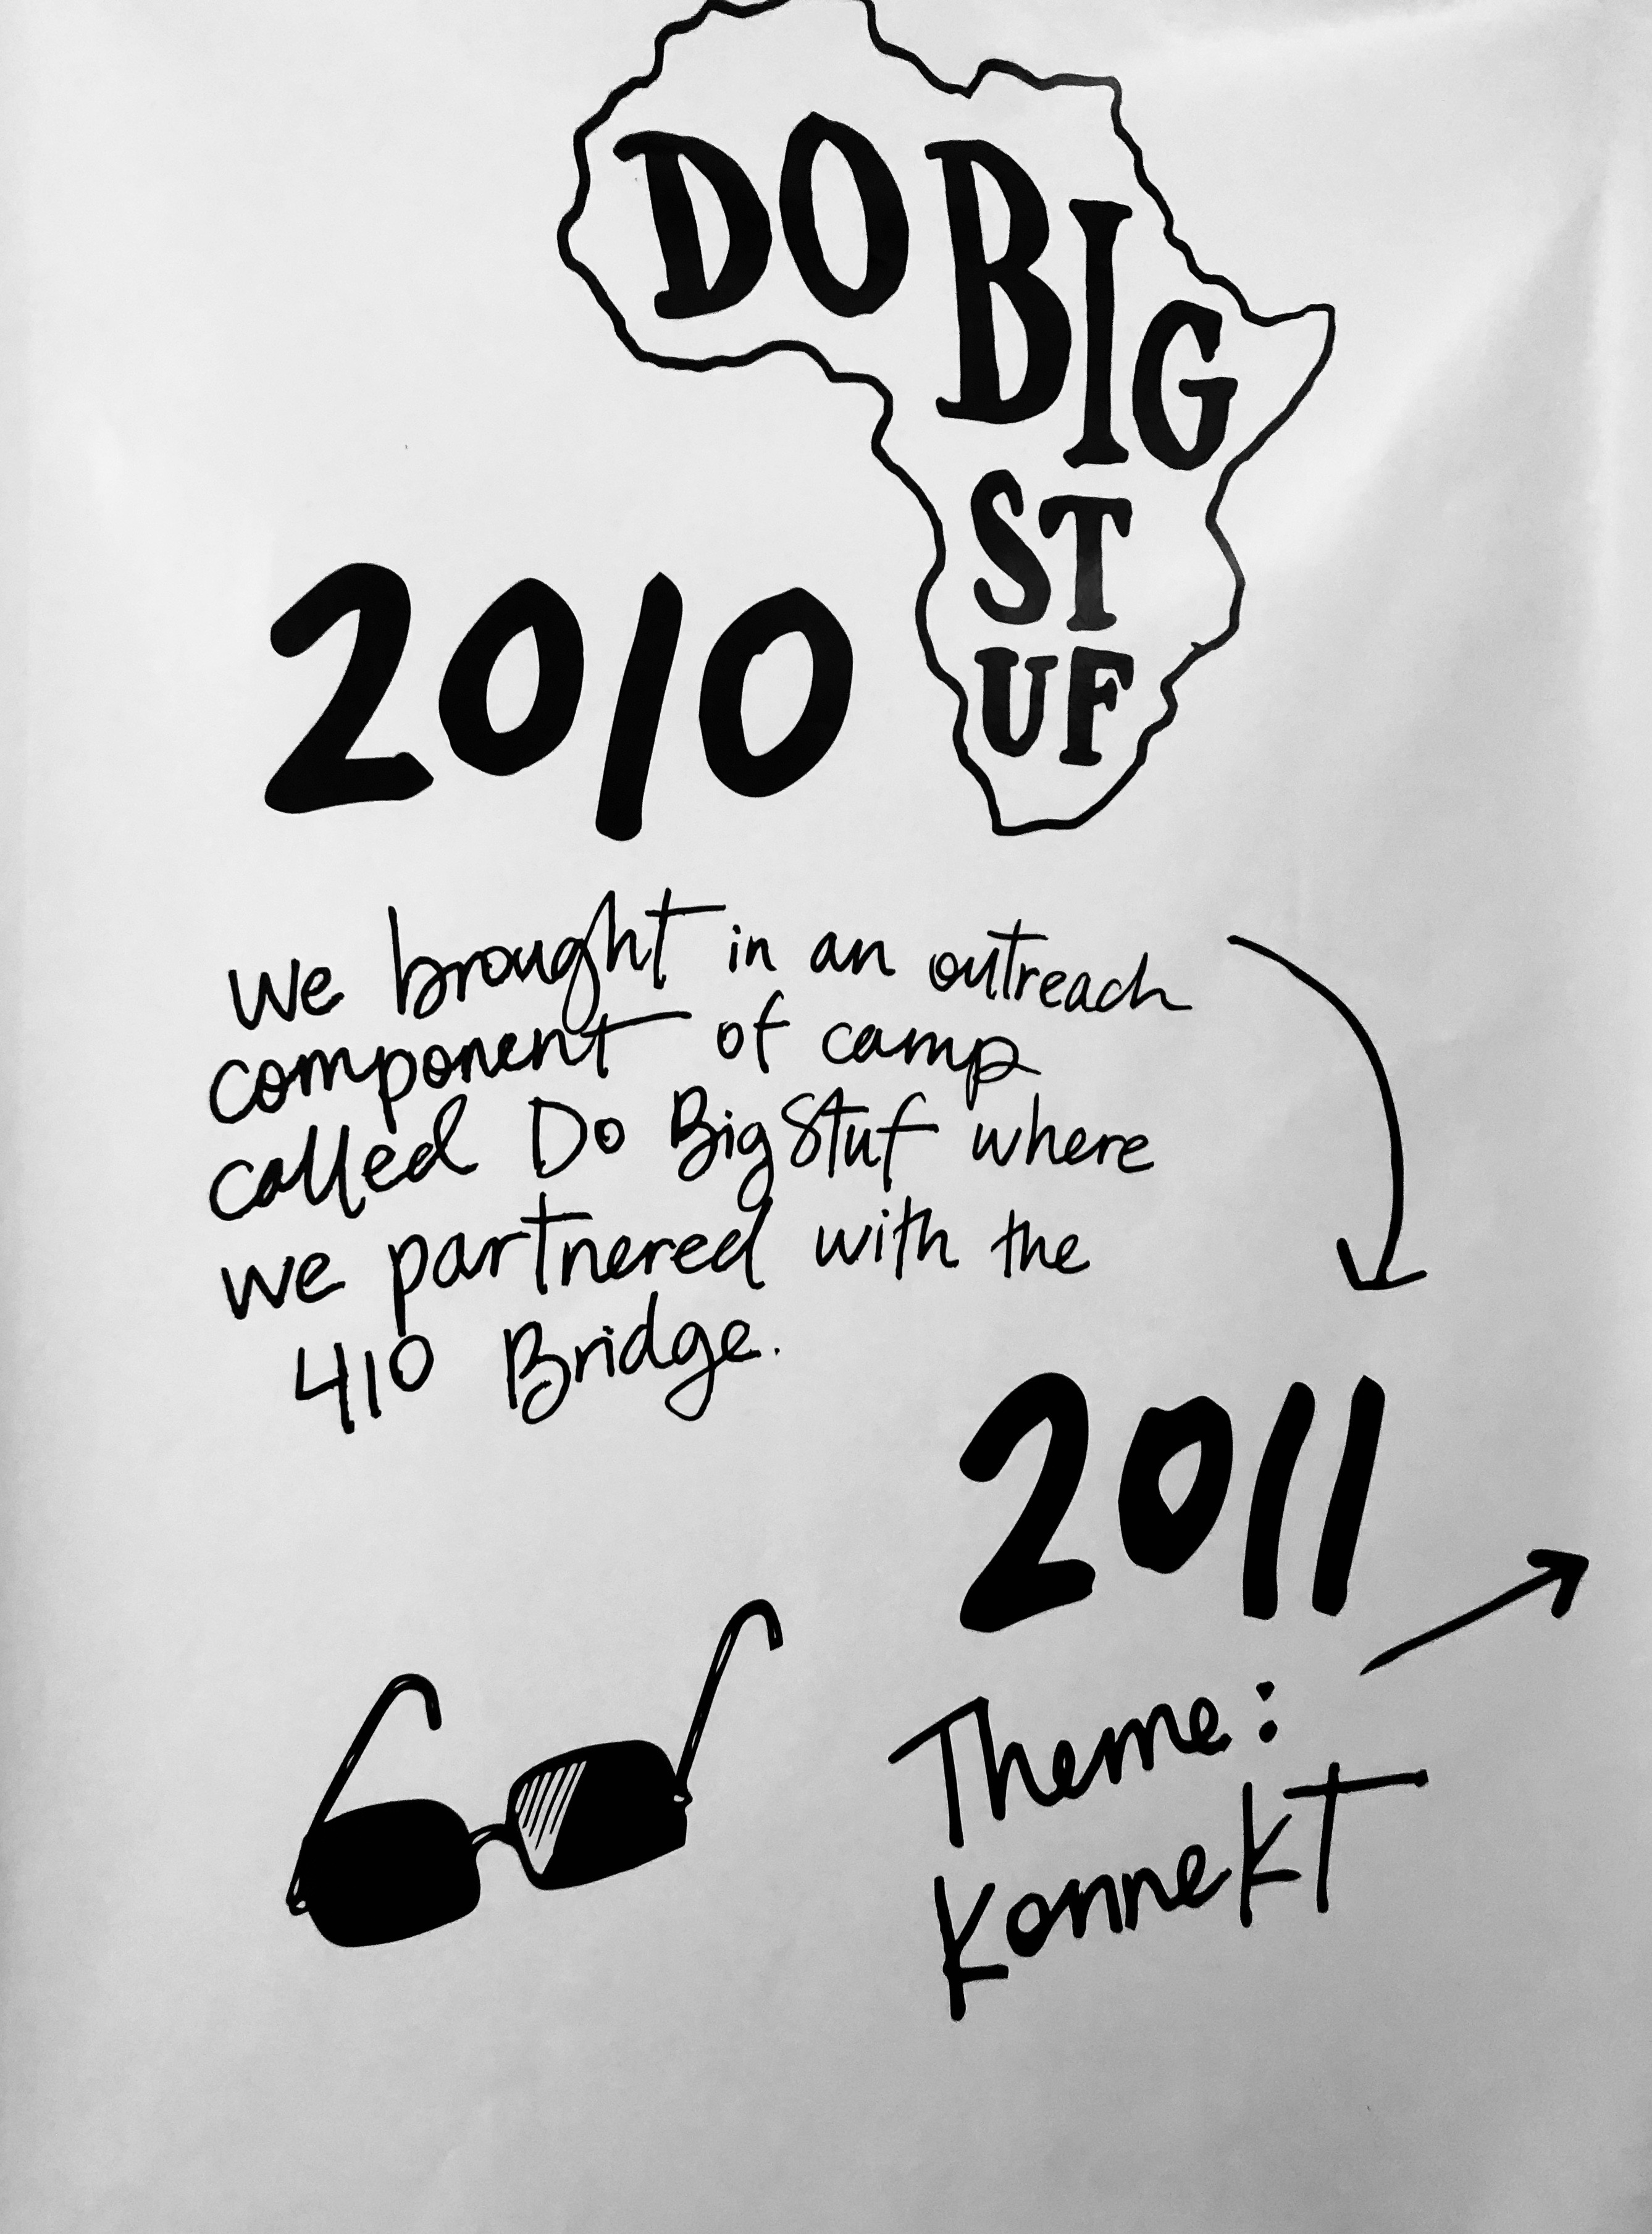 DO BIG
ST
UF
2010
We brought in an outreach
component of camp
called Do BigStuf where
we partnered with the
410 Bridge.
2011
Theme:
KonneKT